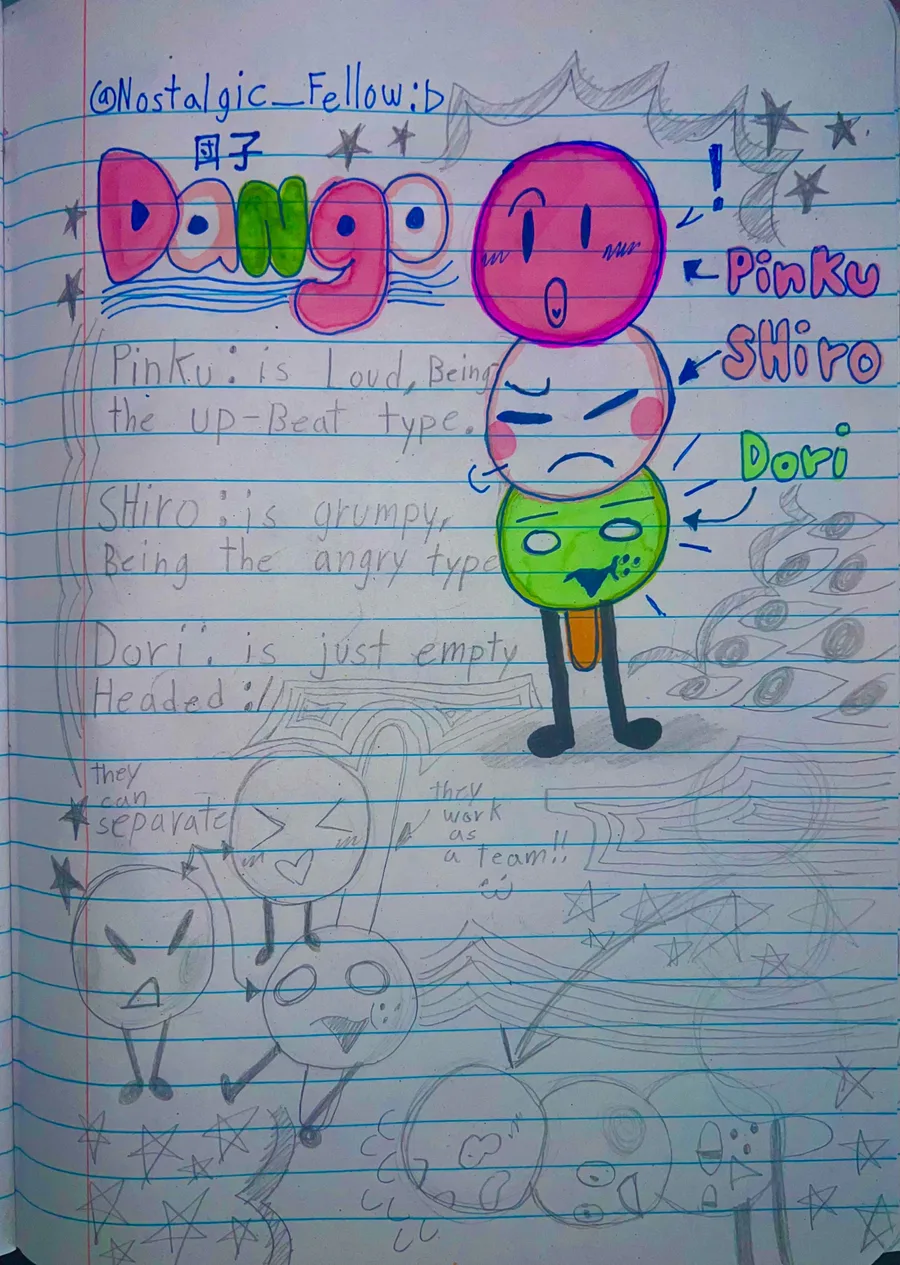 @Nostalgic_Fellow:b
団子
DaNgo
!
PinKu
SHiro
Dori
PinKu: is Loud, Being
the up-Beat type.
SHiro: is grumpy,
Being the angry type
Dori: is just empty
Headed :/
they
can
separate
they
work
as
a team!!
:3